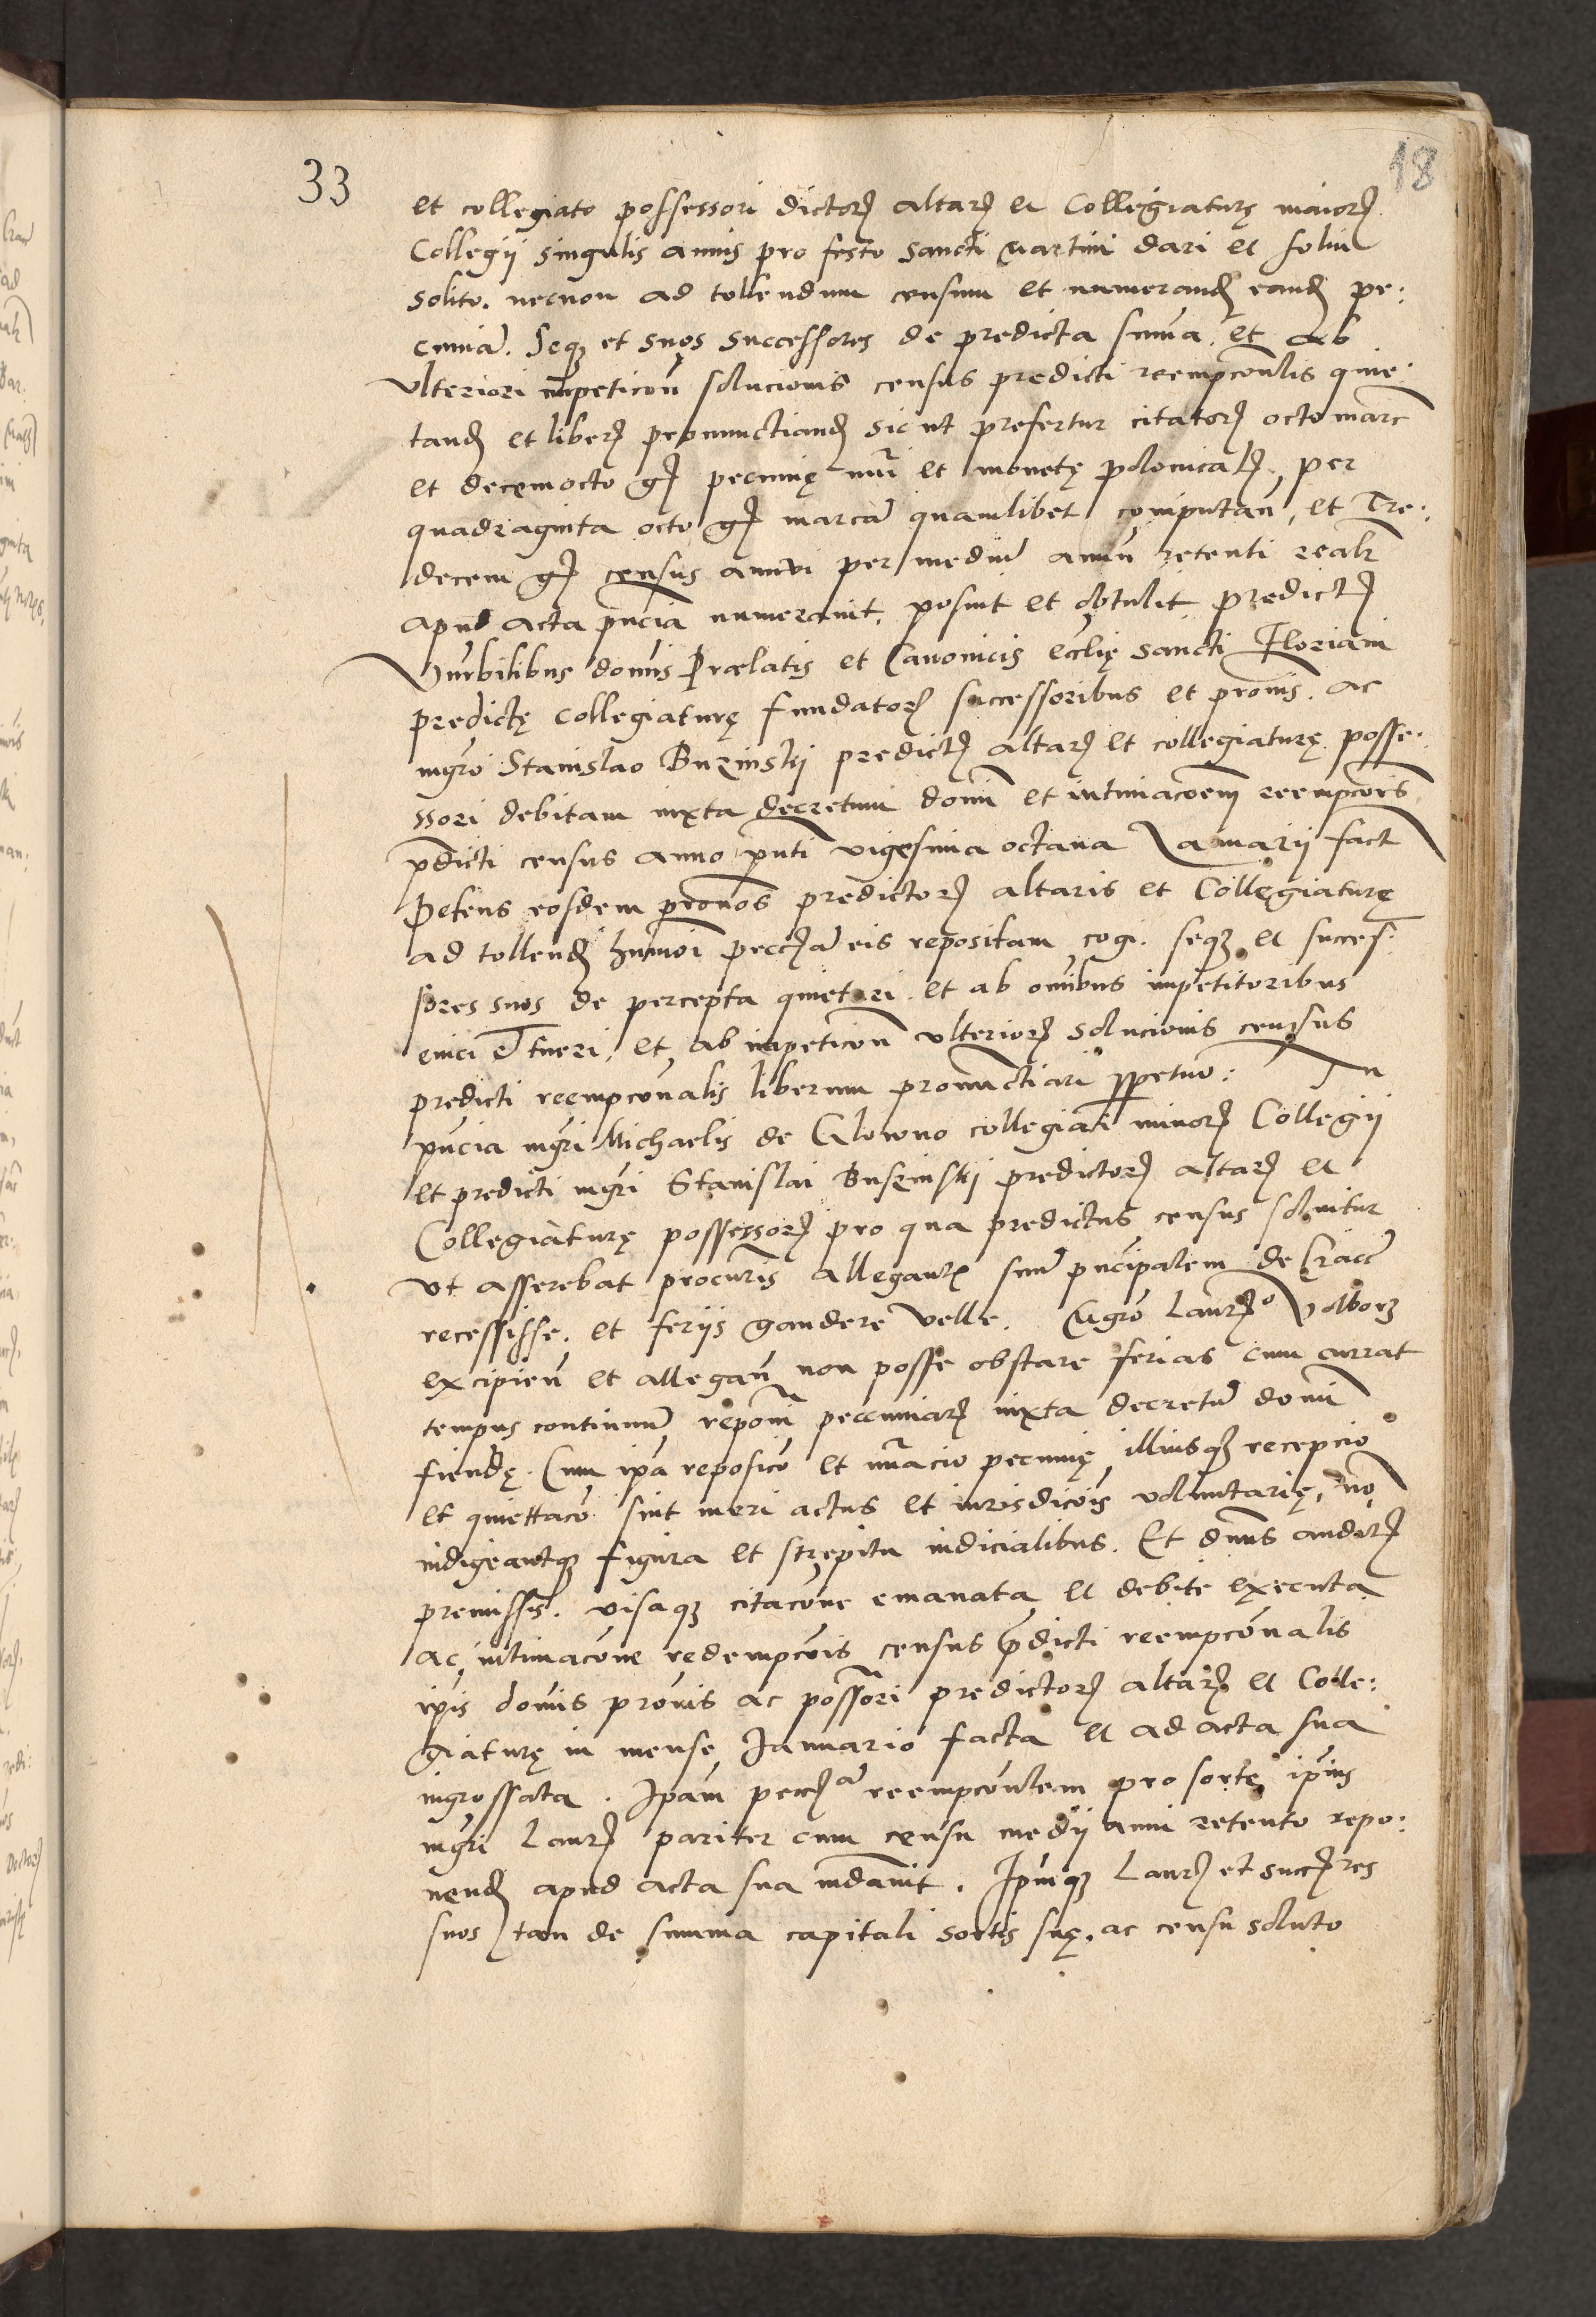 33
18
et collegiato possessori dictorum altaris et Collegiaturę maioris
Collegii singulis annis pro festo Sancti Martini dari et solui
solito. necnon ad tollendum censum et numerandum eandem pe:
cuniã. Seque et suos successores de predicta summa. et ab
vlteriori impeticone solucionis census predicti reempconalis quie:
tandum et liberum pronunctiandum sicut prefertur citatorum octo marc
et decemocto grossis pecunię numeri et monetę polonicalis, per
quadraginta octo grossis marcã quamlibet computan, et Tre:
decem grossis census annui per mediũ annũ retenti realr
apud acta pñcia numerauit, posuit et obtulit predictis
Vñrbilibus domnis Prælatis et Canonicis ecclię Sancti Floriani
predictę collegiaturę fundatoris successoribus et prouis. ac
mgro Stanislao Buzinskij predictis altaris et collegiaturę posse:
ssori debitam iuxta decretum domi et intimacoem reempcois
pdicti census anno pñti vigesima octaua Januarij fact
Petens eosdem prouos predictorum altaris et Collegiaturę
ad tollendum huiusmoi peccam eis repositam cogi. seque et succes:
sores suos de percepta quietari. et ab omnibus impetitoribus
euici et tueri, et ab impeticone vlterioris solucionis census
predicti reempconalis liberum pronunctiari ppetuo: In
pñcia mgri Michaelis de Glowno collegiati minoris Collegij
et predicti mgri Stanislai Buszinskij predictorum altaris et
Collegiaturę possessoris pro qua predictus census soluitur
vt asserebat procuris allegantis suũ pñcipalem de Crac
recessisse. et feriis gaudere velle. Mgro Laur° Volborz
excipien et allegan non posse obstare ferias cum currat
tempus continuum reponi pecuniarum iuxta decretũ domi
fiendę. Cum ipa reposico et nũacio pecunię illiusque recepcio
et quiettaco sint meri actus et iurisdicois voluntarię, no
indigeantque figura et strepitu iudicialibus. Et dnus auditis
premissis. visaque citacone emanata et debite executa
ac intimacone redempcois census pdicti reempconalis
ipis domis prouis ac possori predictorum altaris et Colle:
giaturę in mense Januario facta et ad acta sua
ingrossata. Ipam peccam reempconlem pro sorte ipius
mgri Laur pariter cum censu medij anni retento repo:
nendum apud acta sua mdauit. Ipmque Laur et succres
suos tam de summa capitali sortis suę. ac censu soluto